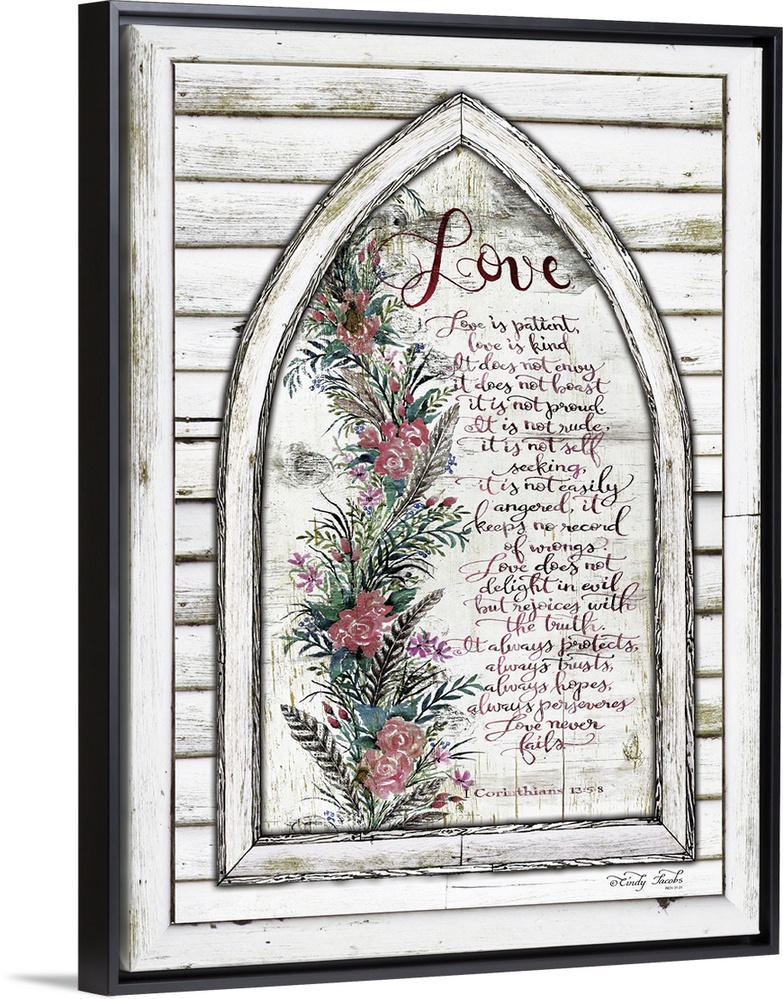 Love
Love is patient,
love is kind
It does not envy
it does not boast
it is not proud.
It is not rude,
it is not self
seeking,
it is not easily
angered, it
keeps no record
of wrongs.
Love does not
delight in evil
but rejoices with
the truth.
It always protects,
always trusts,
always hopes,
always perseveres
Love never
fails.
1 Corinthians 13:5-8
©Cindy Jacobs